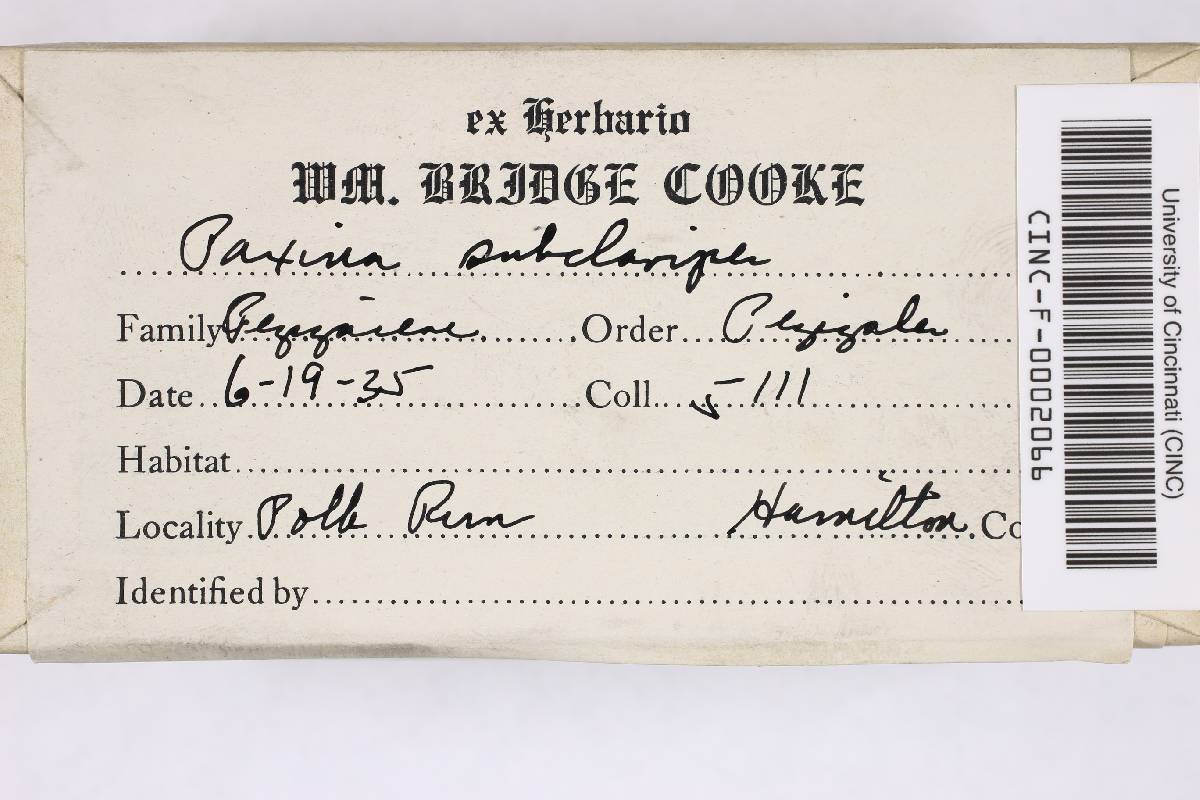 ex Herbario
WM. BRIDGE COOKE
Paxina subclavipes
Family Pezizaceae Order Pezizales
Date 6-19-35 Coll. 5111
Habitat
Locality Polk Run Hamilton Co
Identified by
University of Cincinnati (CINC)
CINC-F-0002066